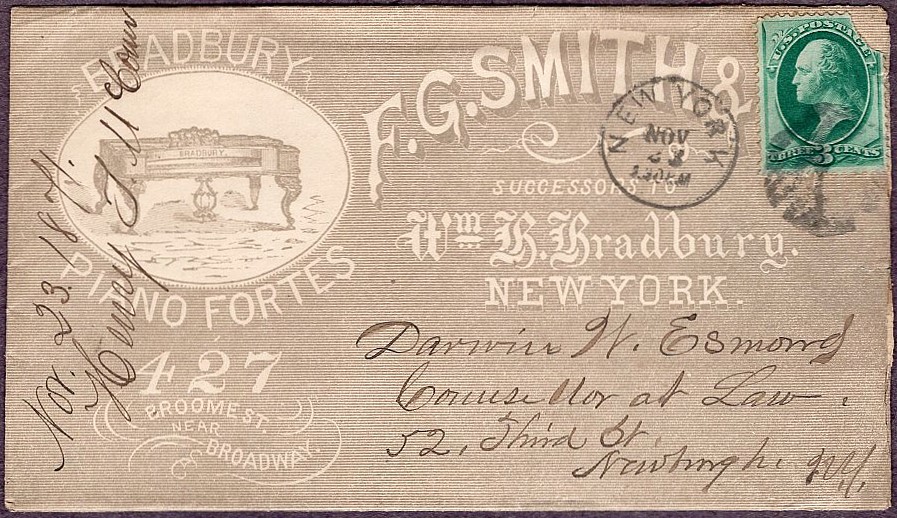 BRADBURY
BRADBURY.
PIANO FORTES
427
BROOME ST.
NEAR
BROADWAY.
F.G. SMITH &
SUCCESSORS TO
Wm B. Bradbury.
NEW YORK.
NEW YORK
NOV
23
4.30 PM
U.S. POSTAGE
THREE 3 CENTS
Darwin W. Esmond
Counsellor at Law.
52, Third St.
Newburgh. N.Y.
Nov. 23. 187
Henry